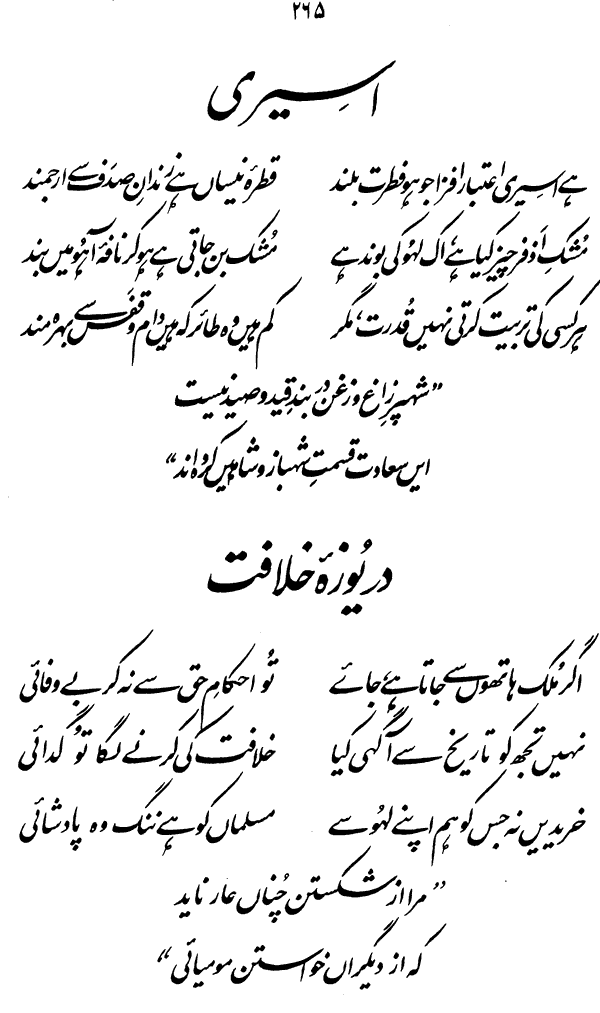 ۲۶۵
اسیری
ہے اسیری اعتبار افزا جو ہو فطرت بلند قطرۂ نیساں ہے زندانِ صدف سے ارجمند
مُشکِ اَذفر چیز کیا ہے، اک لہو کی بوند ہے مُشک بن جاتی ہے ہو کر نافۂ آہو میں بند
ہر کسی کی تربیت کرتی نہیں قُدرت، مگر کم ہیں وہ طائر کہ ہیں دام و قفس سے بہرہ مند
”شہپرِ زاغ و زغن در بندِ قید و صید نیست
ایں سعادت قسمتِ شہباز و شاہیں کردہ اند“
دریُوزۂ خلافت
اگر مُلک ہاتھوں سے جاتا ہے، جائے تُو احکامِ حق سے نہ کر بے وفائی
نہیں تجھ کو تاریخ سے آگہی کیا خلافت کی کرنے لگا تُو گدائی
خریدیں نہ جس کو ہم اپنے لہُو سے مسلماں کو ہے ننگ وہ پادشائی
”مرا از شکستن چُناں عار ناید
کہ از دیگراں خواستن مومیائی“